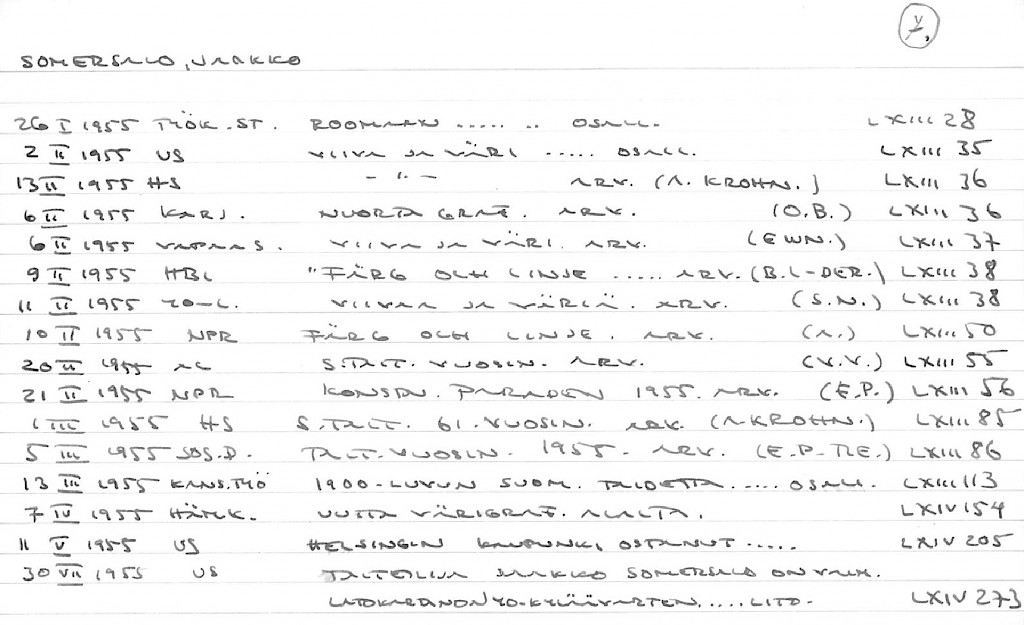 SOMERSALO, JAAKKO
26 I 1955 TYÖK.ST. ROOMAAN ..... .. OSALL. LXIII 28
2 II 1955 US VIIVA JA VÄRI ..... OSALL. LXIII 35
13 II 1955 HS - " - ARV. (A. KROHN.) LXIII 36
6 II 1955 KARJ. NUORTA GRAF. ARV. (O.B.) LXIII 36
6 II 1955 VAPAA S. VIIVA JA VÄRI. ARV. (EWN.) LXIII 37
9 II 1955 HBL "FÄRG OCH LINJE ..... ARV. (B.L-DER.) LXIII 38
11 II 1955 YO-L. VIIVAA JA VÄRIÄ. ARV. (S.N.) LXIII 38
10 II 1955 NPR FÄRG OCH LINJE. ARV. (A.) LXIII 50
20 II 1955 AL S.TAIT. VUOSIN. ARV. (V.V.) LXIII 55
21 II 1955 NPR KONSTN. PARADEN 1955. ARV. (E.P.) LXIII 56
1 III 1955 HS S.TAIT. 61. VUOSIN. ARV. (A KROHN.) LXIII 85
5 III 1955 SOS.D. TAIT. VUOSIN. 1955. ARV. (E.P-TIE.) LXIII 86
13 III 1955 KANS.TYÖ 1900-LUVUN SUOM. TAIDETTA ..... OSALL. LXIII 113
7 IV 1955 HÄMK. UUTTA VÄRIGRAF. ALALTA. LXIV 154
11 V 1955 US HELSINGIN KAUPUNKI OSTANUT ..... LXIV 205
30 VII 1955 US TAITEILIJA JAAKKO SOMERSALO ON VALM.
LATOKARTANON YO-KYLÄÄ VARTEN ..... LITO- LXIV 273